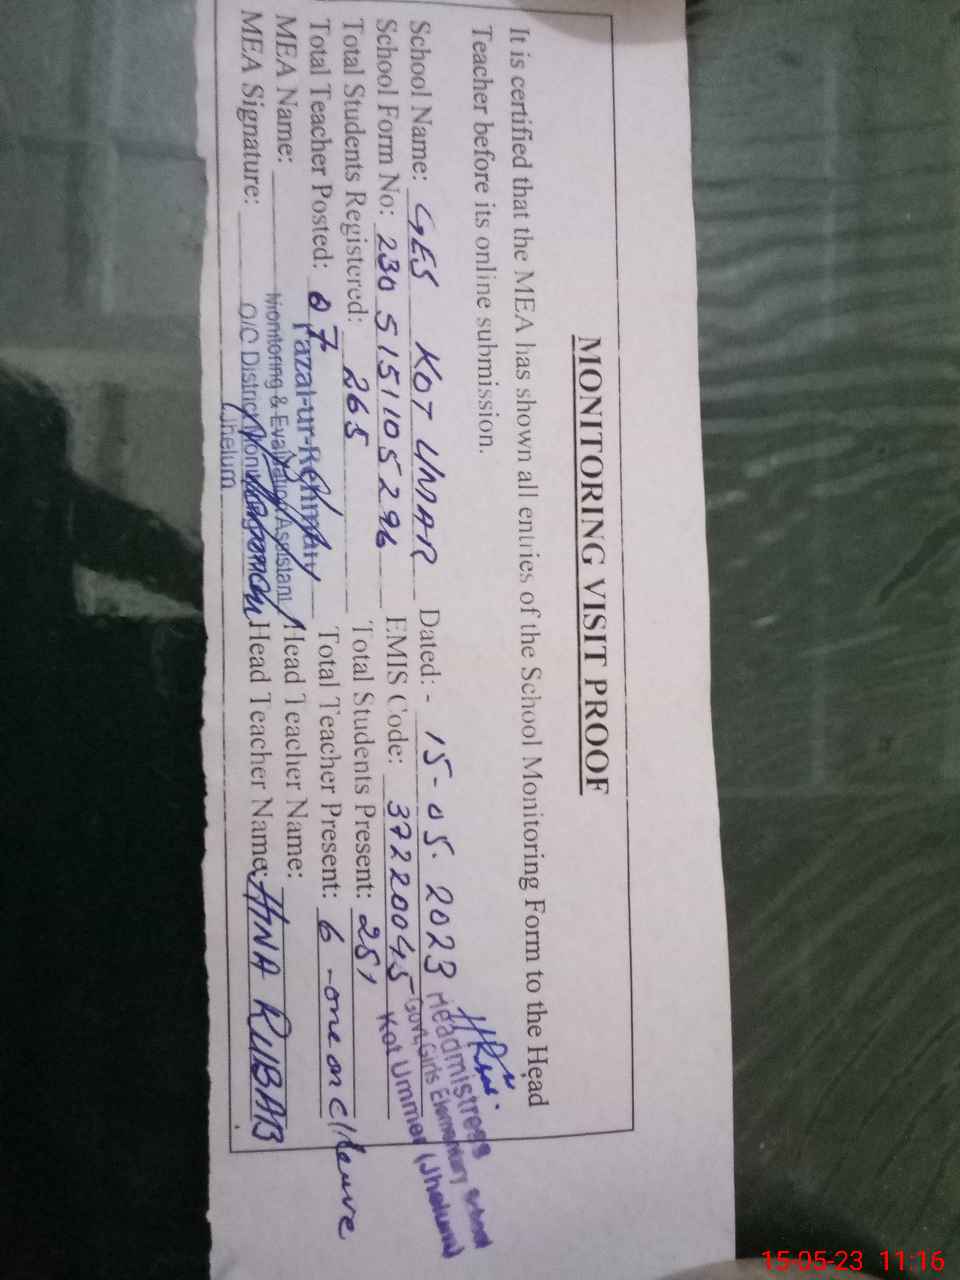 MONITORING VISIT PROOF
It is certified that the MEA has shown all entries of the School Monitoring Form to the Head
Teacher before its online submission.
School Name: GES KOT UMAR Dated: - 15-05-2023
School Form No: 230 5151105296 EMIS Code: 37220045
Total Students Registered: 265 Total Students Present: 251
Total Teacher Posted: 07 Total Teacher Present: 6 - one on C/leave
MEA Name: Fazal-ur-Rehman Head Teacher Name:
MEA Signature: Head Teacher Name: HINA RUBAB
Monitoring & Evaluation Assistant
O/O District Monitoring
Jhelum
Headmistress
Govt. Girls Elementary School
Kot Ummer (Jhelum)
15-05-23 11:16